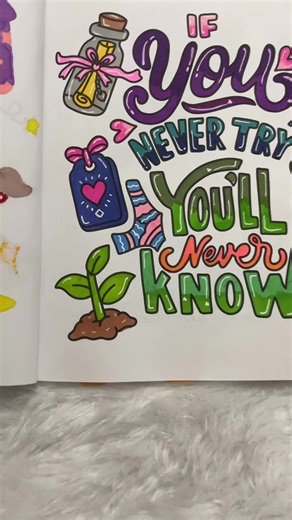 IF
You
NEVER TRY
YOU'LL
Never
KNOW